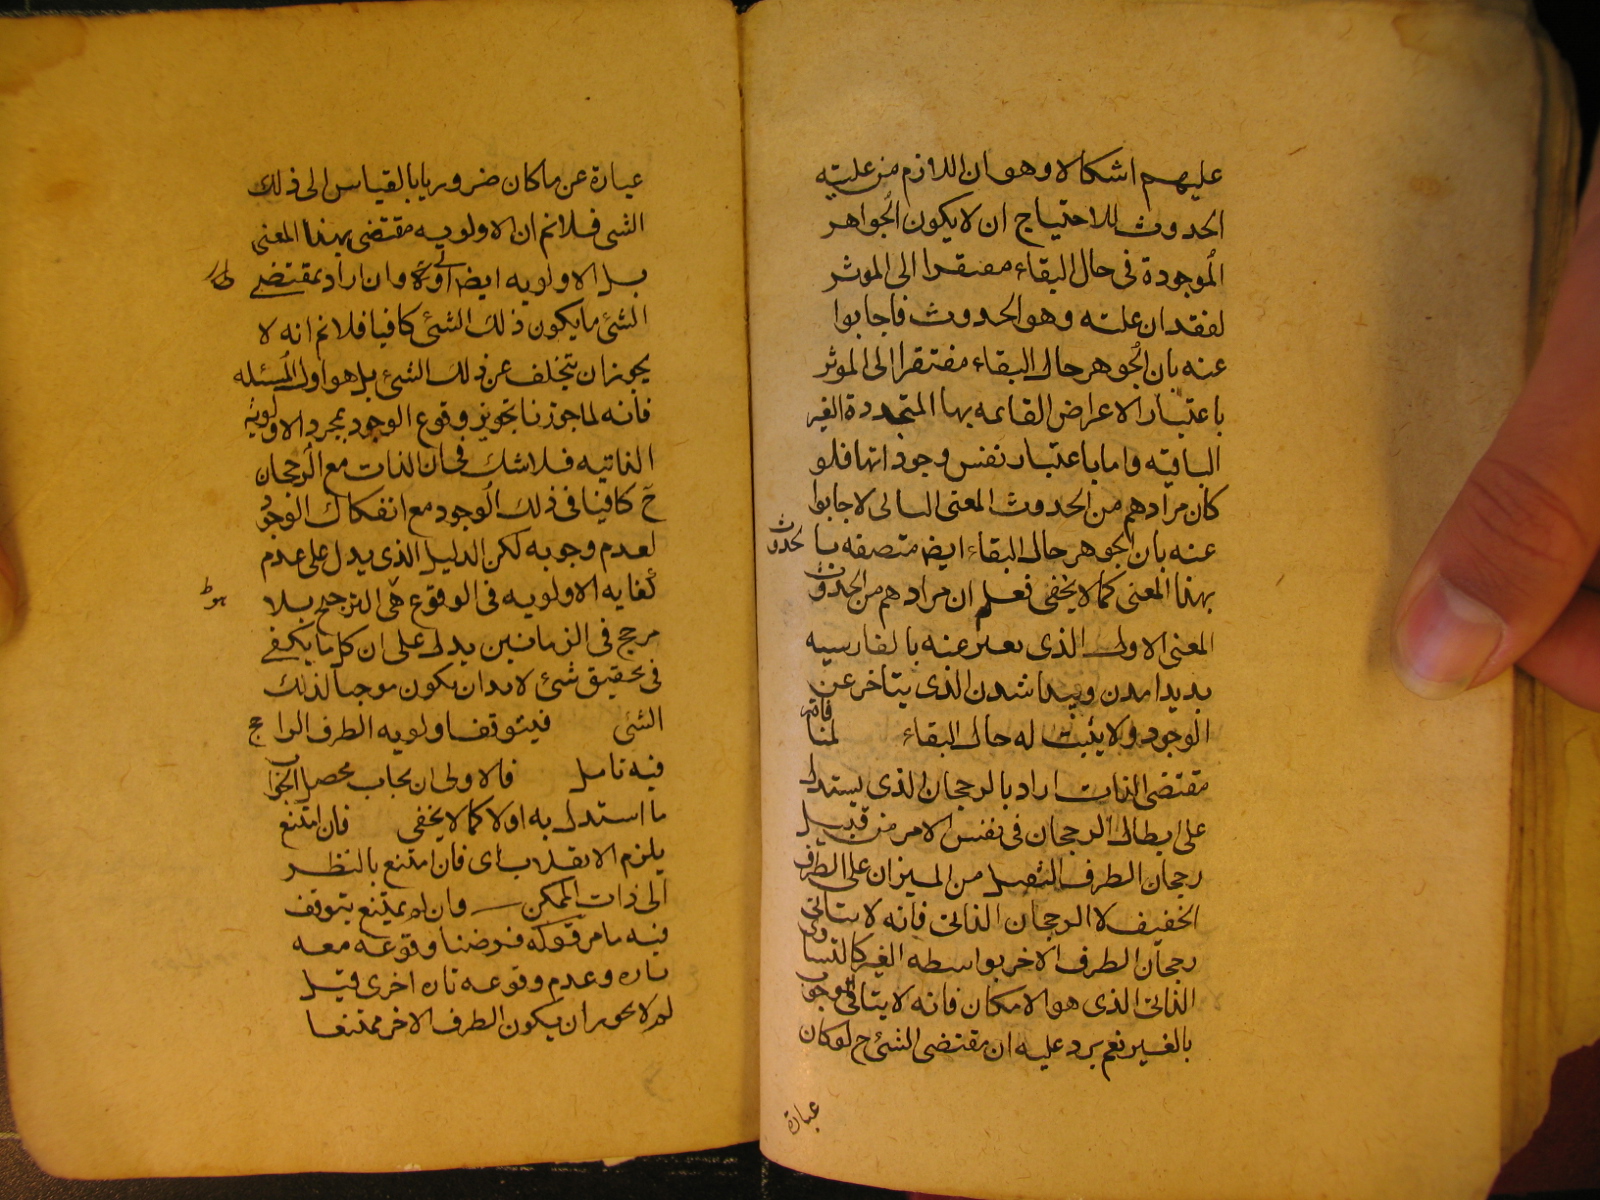 عليهم اشكالا وهو ان اللازم من علية
الحدوث للاحتياج ان لا يكون الجواهر
الموجودة في حال البقاء مفتقرا الى الموثر
لفقدان علته وهو الحدوث فاجابوا
عنه بان الجوهر حال البقاء مفتقرا الى الموثر
باعتبار الاعراض القائمه بها المتجددة الغير
الباقيه واما باعتبار نفس وجوداتها فلو
كان مرادهم من الحدوث المعنى التالى لاجابوا
عنه بان الجوهر حال البقاء ايضا متصفه بالحدوث
بهذا المعنى كما لا يخفى فعلم ان مرادهم من الحدوث
المعنى الاول الذى يعبر عنه بالفارسيه
پديد امدن وپيدا شدن الذى يتاخر عن
الوجود ولا يثبت له حال البقاء
مقتضى الذات اراد بالرجحان الذى يستدل
على ابطال الرجحان فى نفس الامر من قبيل
رجحان الطرف الثقيل من الميزان على الطرف
الخفيف لا الرجحان الذاتى فانه لا ينافى
رجحان الطرف الاخر بواسطه الغير كالتساوى
الذاتى الذى هو الامكان فانه لا ينافى الوجوب
بالغير نعم يرد عليه ان مقتضى الشئ ح لو كان
عبارة
عبارة عن ما كان ضروريا بالقياس الى ذلك
الشى فلا نم ان الاولويه مقتضى بهذا المعنى
بل الاولويه ايضا اولى وان اراد بمقتضى
الشئ ما يكون ذلك الشئ كافيا فلا نم انه لا
يجوز ان يتخلف عن ذلك الشئ بل هو اول المسئله
فانه لما جوزنا تجويز وقوع الوجود بمجرد الاولويه
الذاتيه فلا شك فى ان الذات مع الرجحان
ح كافيا فى ذلك الوجود مع انفكاك الوجود
لعدم وجوبه لكن الدليل الذى يدل على عدم
كفايه الاولويه فى الوقوع هى الترجيح بلا
مرجح فى الزمانين يدل على ان كل ما يكفى
فى تحقيق شئ لا بد ان يكون موجبا لذلك
الشى فيتوقف اولويه الطرف الراجح
فيه تامل فالاولى ان يجاب محصل الجواب
ما استدل به اولا كما لا يخفى فان امتنع
يلزم الانقلاب اى فان امتنع بالنظر
الى ذات الممكن وان لم يمتنع يتوقف
فيه ما مر قوله فرضنا وقوعه معه
تاره وعدم وقوعه تاره اخرى قيل
لم لا يجوز ان يكون الطرف الاخر ممتنعا